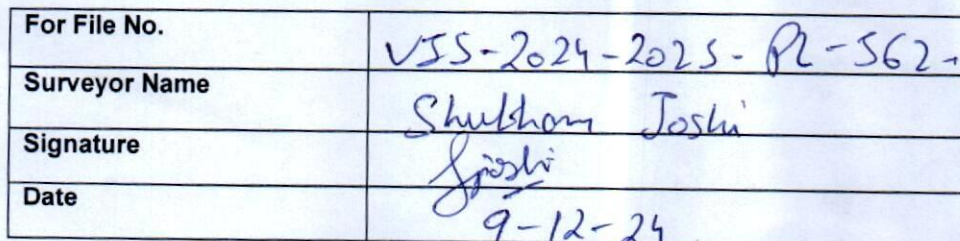 For File No. VIS-2024-2025-PL-562-
Surveyor Name Shubham Joshi
Signature Sjoshi
Date 9-12-24